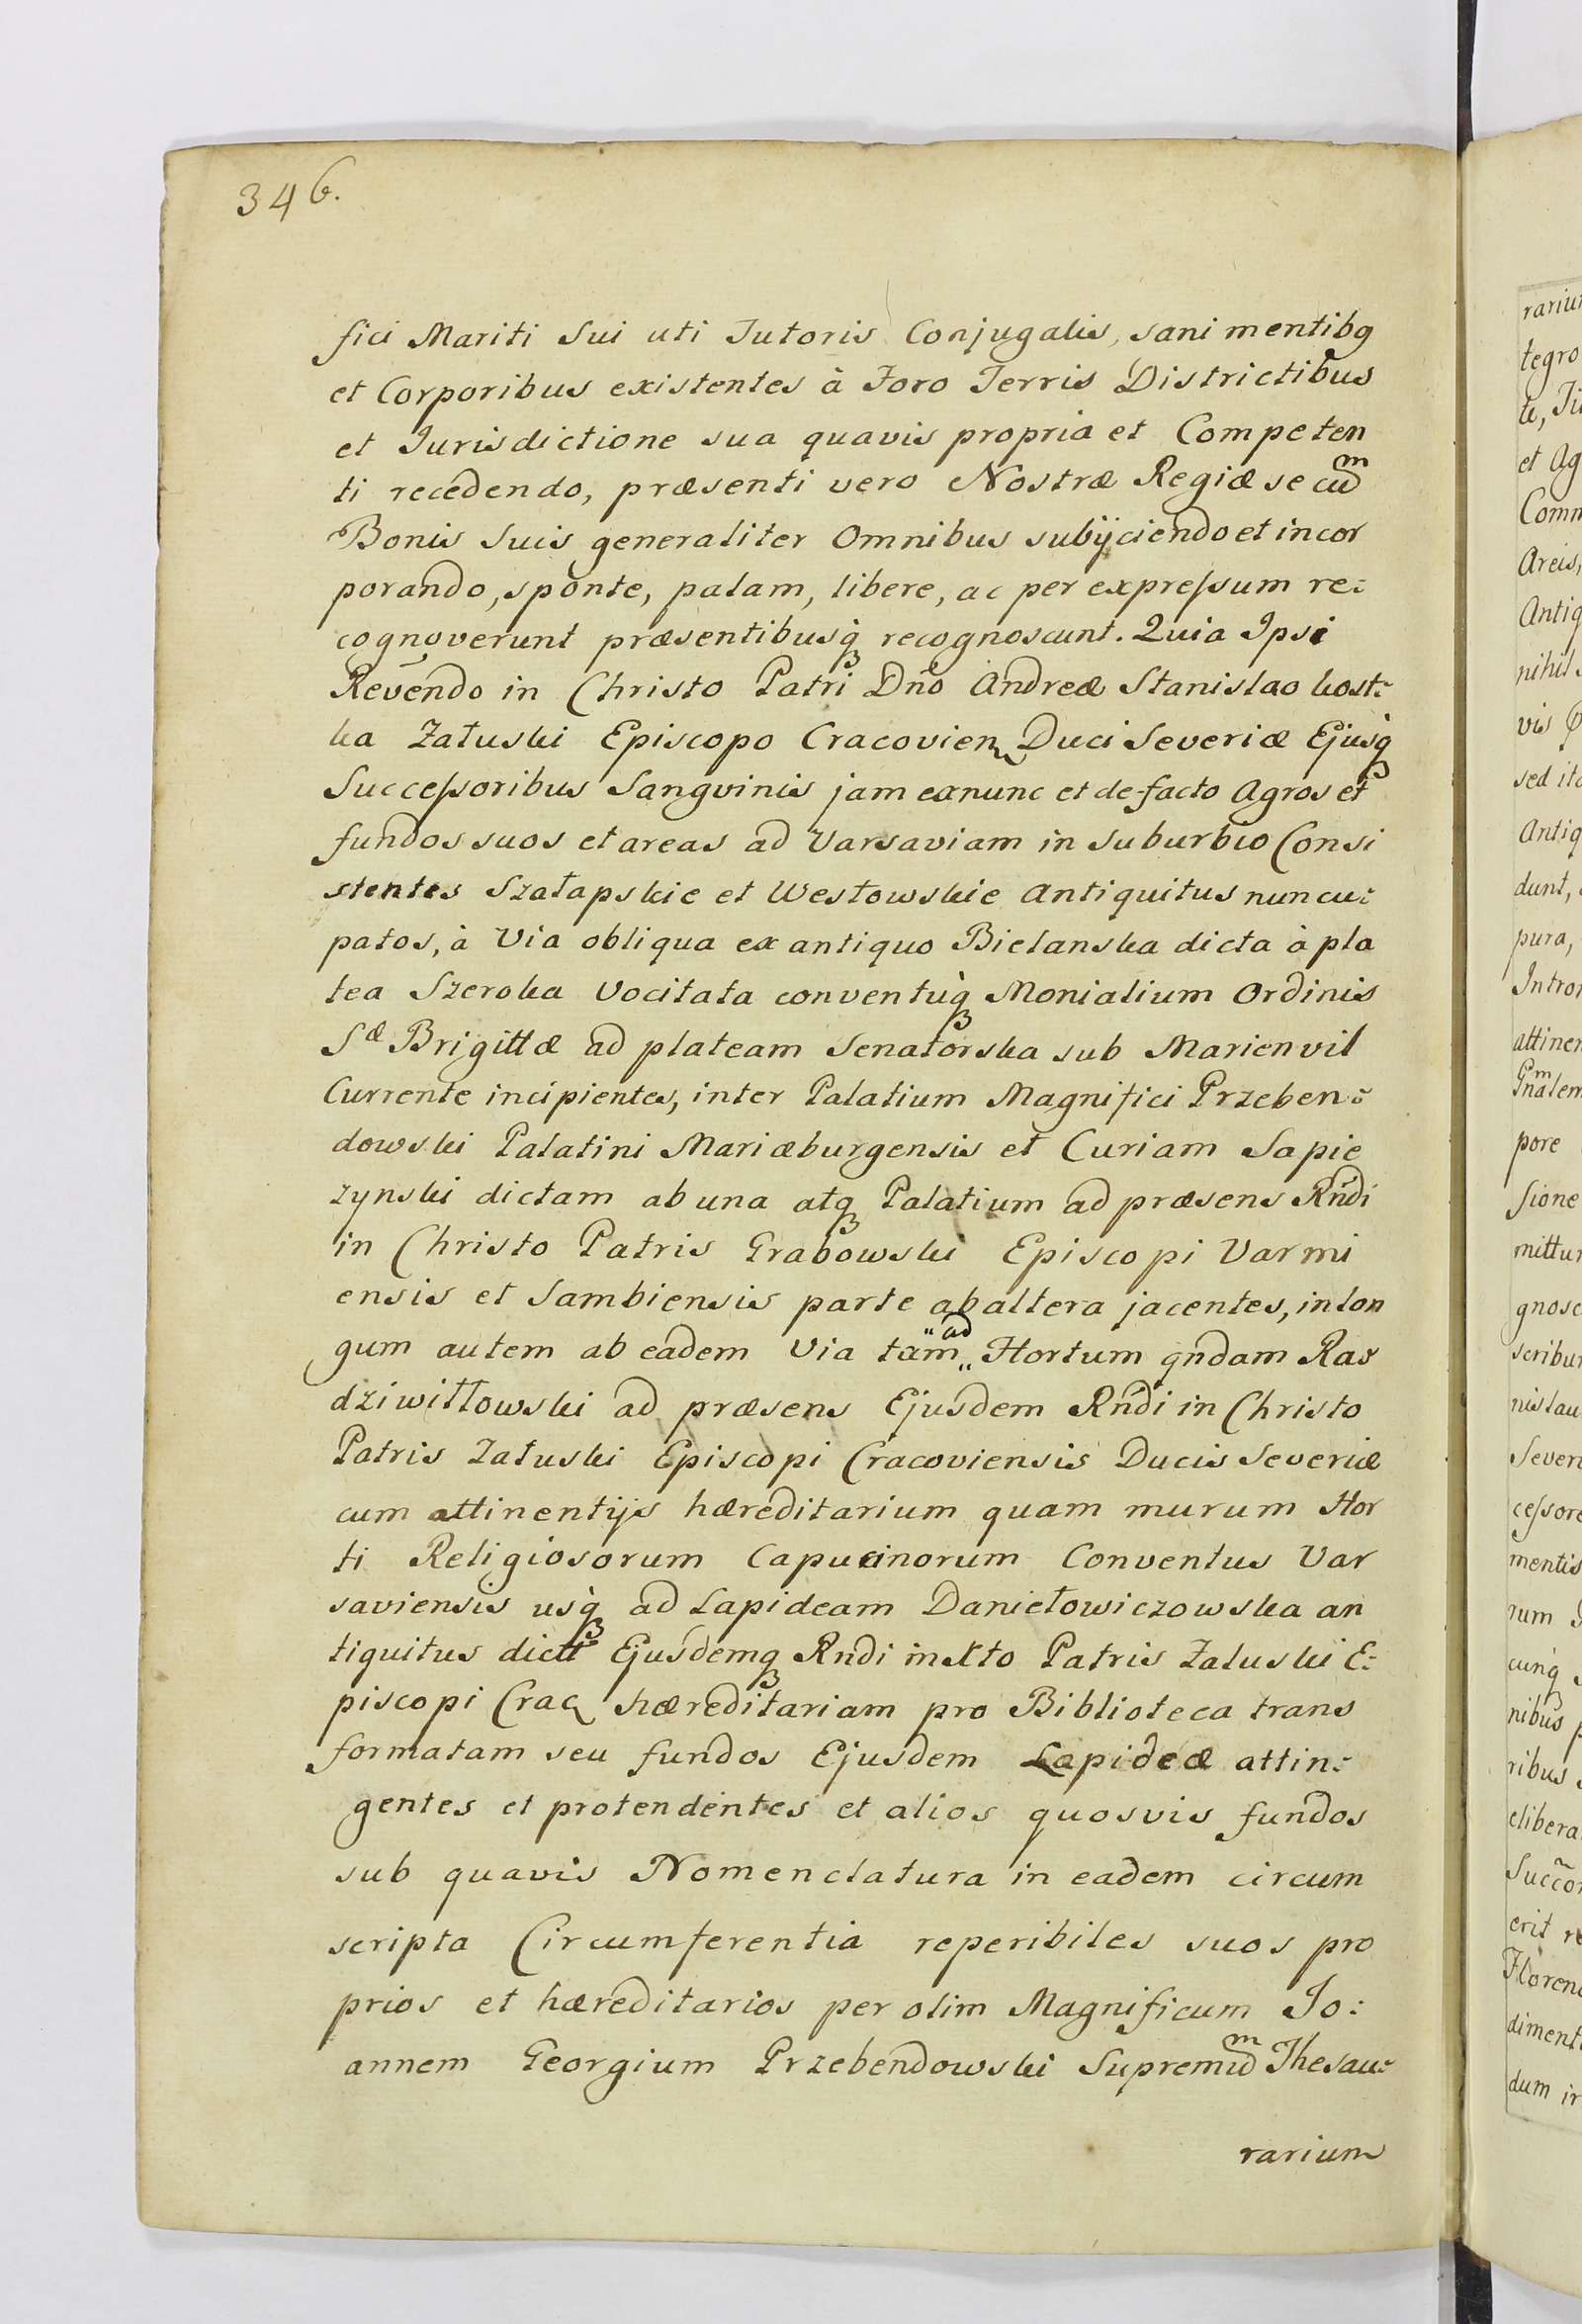 346.
fici Mariti Sui uti Tutoris Conjugalis, sani mentibq
et Corporibus existentes à Foro Terris Districtibus
et Jurisdictione sua quavis propria et Competen
ti recedendo, præsenti vero Nostræ Regiæ se cum
Bonis Suis generaliter Omnibus subijciendo et incor
porando, sponte, palam, libere, ac per expreſsum re:
cognoverunt præsentibusq; recognoscunt. Quia Ipsi
Revendo in Christo Patri Dno Andreæ Stanislao kost:
ka Załuski Episcopo Cracovien Duci Severiæ Ejusq;
Succeſsoribus Sangvinis jam exnunc et de facto Agros et
fundos suos et areas ad Varsaviam in Suburbio Consi
stentes Szałapskie et Westowskie Antiquitus nuncu:
patos, à Via obliqua ex antiquo Bielanska dicta à pla
tea Szeroka Vocitata conventuq; Monialium Ordinis
Sæ Brigittæ ad plateam Senatorska sub Marienvil
Currente incipientes, inter Palatium Magnifici Przeben:
dowski Palatini Mariæburgensis et Curiam Sapie
zynski dictam ab una atq; Palatium ad præsens Rndi
in Christo Patris Grabowski Episcopi Varmi
ensis et Sambiensis parte ab altera jacentes, in lon
gum autem ab eadem Via tam ad Hortum qndam Ra
dziwiłłowski ad præsens Ejusdem Rndi in Christo
Patris Załuski Episcopi Cracoviensis Ducis Severiæ
cum attinentijs hæreditarium quam murum Hor
ti Religiosorum Capucinorum Conventus Var
saviensis usq; ad Lapideam Daniełowiczowska an
tiquitus dict Ejusdemq; Rndi in Xto Patris Zaluski E:
piscopi Crac hæreditariam pro Biblioteca trans
formatam seu fundos Ejusdem Lapideæ attin:
gentes et protendentes et alios quosvis fundos
sub quavis Nomenclatura in eadem circum
scripta Circumferentia reperibiles suos pro
prios et hæreditarios per olim Magnificum Jo:
annem Georgium Przebendowski Supremum Thesau:
rarium
tegro
et Ag
Areis,
Antiq
nihil
vis
sed ita
Antiq
dunt,
pura,
attinen
pore
sione
mittun
gnosc
scribun
nislau
Severi
ceſsore
mentis
rum
cunq;
nibus
ribus
elibera
erit
Floren
diment
dum in